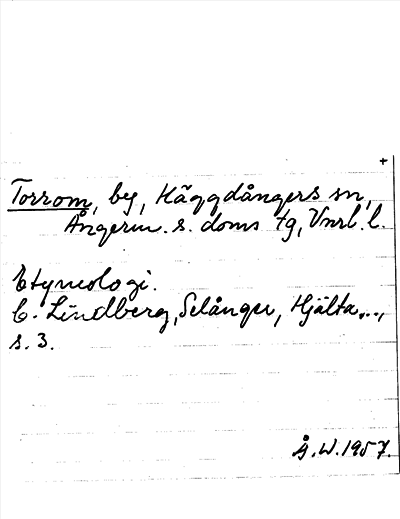 +
Torrom, by, Häggdångers sn,
Ångerm. s. doms tg, Vnrl. l.
Etymologi.
C. Lindberg, Selånger, Hjälta...,
s. 3.
Å. W. 1957.